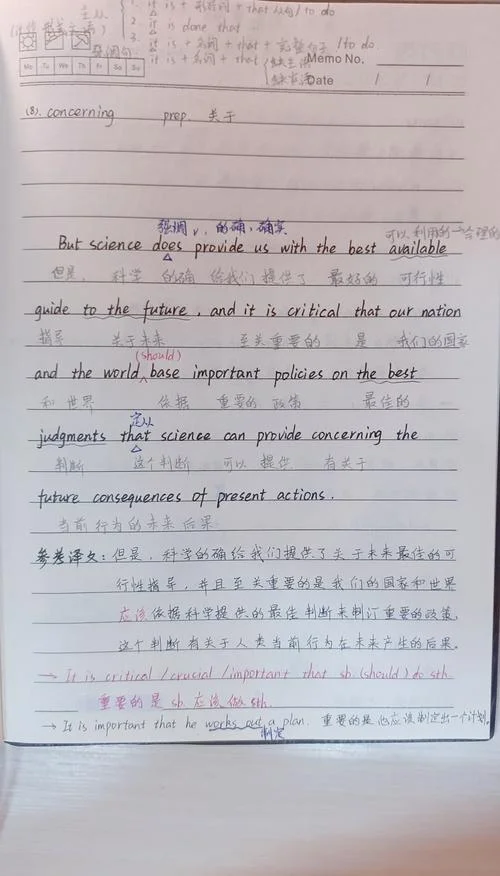 主从
1. it is + 形容词 + that 从句 / to do
2. it is done that
3. it is + 名词 + that + 完整句子 / to do.
强调句: it is + 名词 + that
Memo No.
Mo Tu We Th Fr Sa Su
Date / /
(8). concerning prep. 关于
强调 v. 的确, 确实
可以利用的
But science does provide us with the best available
但是, 科学 的确 给我们 提供了 最好的 可行性
guide to the future, and it is critical that our nation
指导 关于未来 至关重要的 是 我们的国家
(should)
and the world base important policies on the best
和世界 依据 重要的 政策 最佳的
定从
judgments that science can provide concerning the
判断 这个判断 可以 提供 有关于
future consequences of present actions.
当前行为的未来后果
参考译文: 但是, 科学的确给我们提供了关于未来最佳的可
行性指导, 并且至关重要的是我们的国家和世界
应该依据科学提供的最佳判断来制订重要的政策,
这个判断有关于人类当前行为在未来产生的后果。
→ It is critical / crucial / important that sb. (should) do sth.
重要的是 sb. 应该做 sth.
→ It is important that he works out a plan. 重要的是他应该制定出一个计划.
制定